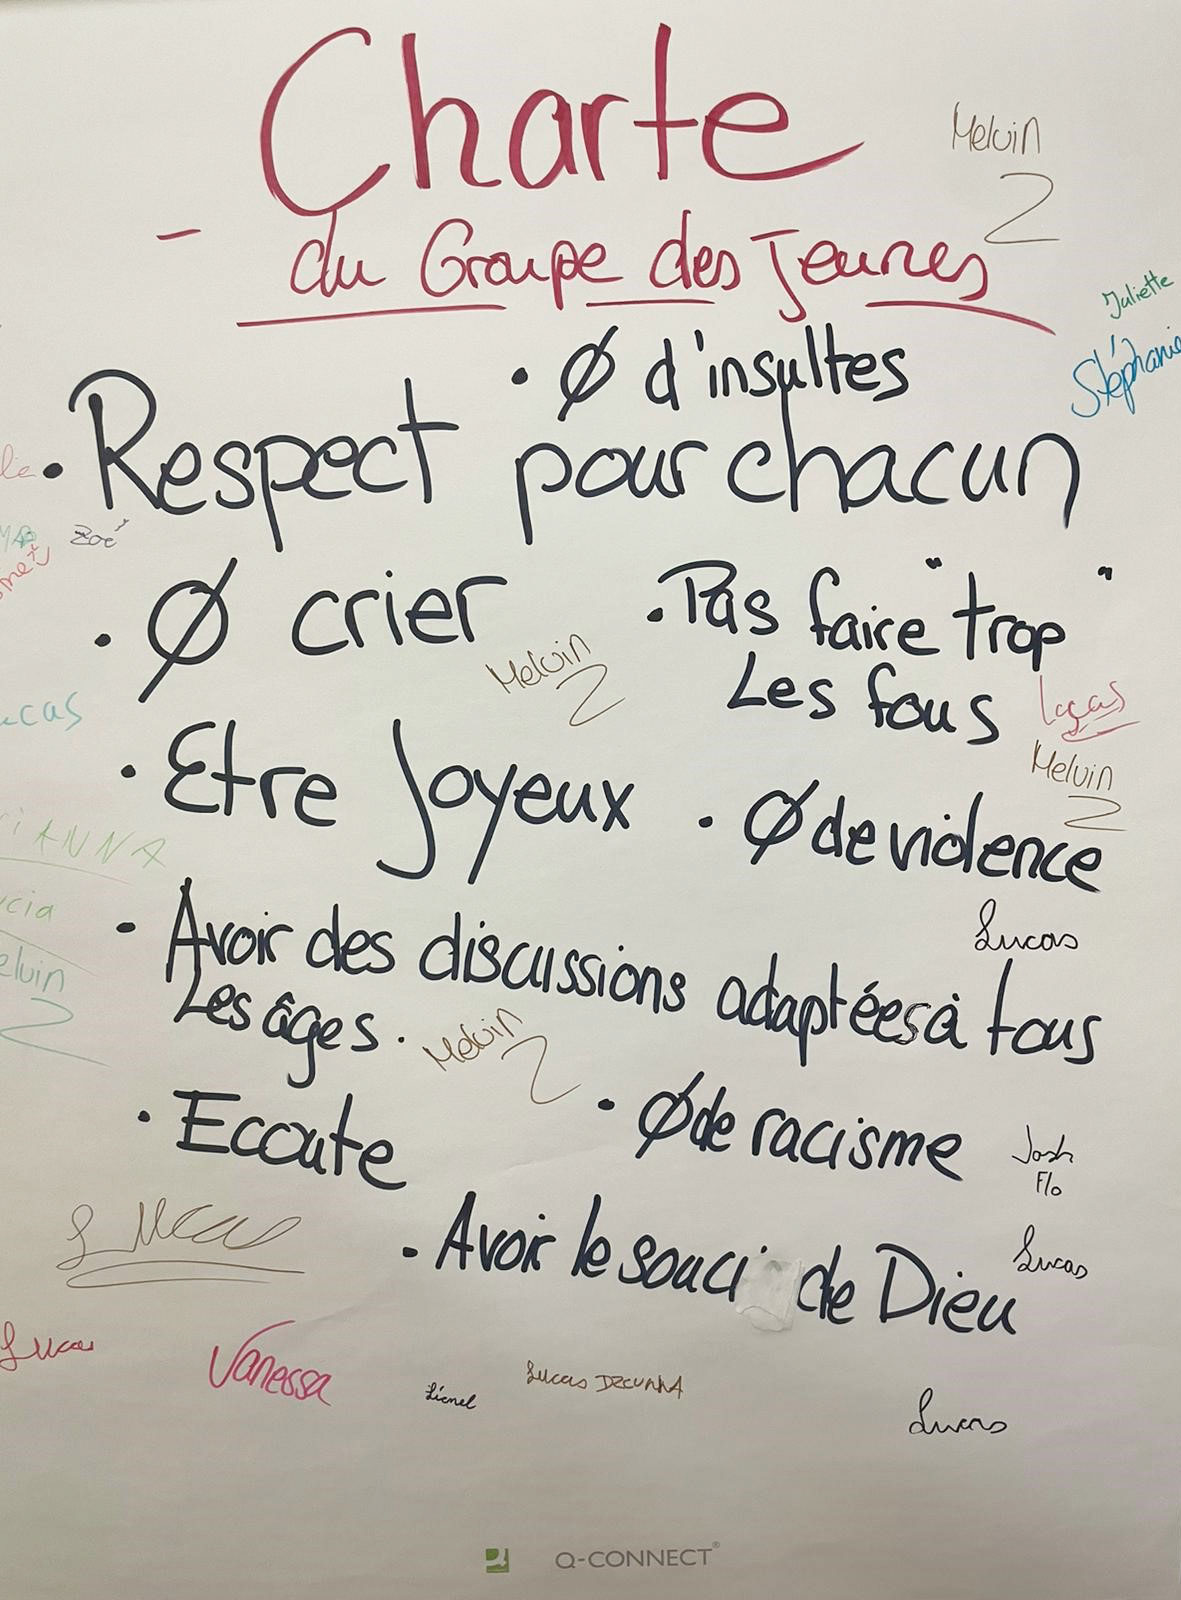 Charte
Melvin
- du Groupe des Jeunes
Juliette
Stéphanie
• Ø d'insultes
• Respect pour chacun
Zoé
• Ø crier
• Pas faire "trop"
Les fous
Melvin
Lucas
Melvin
• Etre Joyeux
• Ø de violence
Lucas
• Avoir des discussions adaptées à tous
Les âges.
Melvin
• Ecoute
• Ø de racisme
Josh
Flo
Lucas
• Avoir le souci de Dieu
Lucas
Lucas
Vanessa
Lionel
Lucas
Lucas
Q-CONNECT®